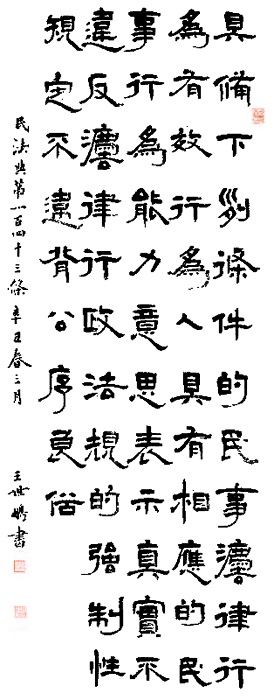 具備下列條件的民事灋律行
為有效行為人具有相應的民
事行為能力意思表示真實不
違反灋律行政法規的強制性
規定不違背公序良俗
民法典第一百四十三條 辛丑春三月 王世書